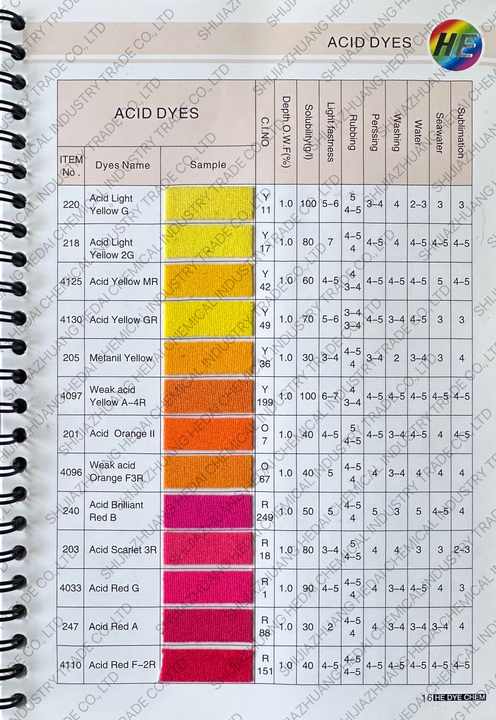 ACID DYES
HE
ACID DYES
ITEM No. Dyes Name Sample C.I.NO Depth.O.W.F(%) Solubility(g/l) Light fastness Rubbing Perssing Washing Water Seawater Sublimation
220 Acid Light Yellow G Y 11 1.0 100 5–6 5 4–5 3–4 4 2–3 3 3
218 Acid Light Yellow 2G Y 17 1.0 80 7 4–5 4 4–5 4 4–5 4–5 4–5
4125 Acid Yellow MR Y 42 1.0 60 4–5 4 3–4 4–5 4–5 4–5 5 4–5
4130 Acid Yellow GR Y 49 1.0 70 5–6 3–4 3–4 4–5 3–4 4–5 3 3
205 Metanil Yellow Y 36 1.0 30 3–4 4–5 4 3–4 2 3–4 3 4
4097 Weak acid Yellow A–4R Y 199 1.0 100 6–7 4 3–4 4–5 4–5 4–5 4–5 4–5
201 Acid Orange II O 7 1.0 40 4–5 5 4–5 4–5 3–4 4–5 4 4–5
4096 Weak acid Orange F3R O 67 1.0 40 5 4–5 4–5 4 3–4 4 4 4
240 Acid Brilliant Red B R 249 1.0 50 5 4–5 4 5 3 5 4–5 4
203 Acid Scarlet 3R R 18 1.0 80 3–4 5 4–5 4 4 3 3 2–3
4033 Acid Red G R 1 1.0 90 4–5 4–5 4 4 3–4 4–5 4 3
247 Acid Red A R 88 1.0 30 2 4–5 4 4 3–4 3–4 3–4 4
4110 Acid Red F–2R R 151 1.0 40 4–5 4–5 4–5 4–5 4–5 4–5 4–5 4–5
16 HE DYE CHEM
SHIJIAZHUANG HEDAI CHEMICAL INDUSTRY TRADE CO., LTD